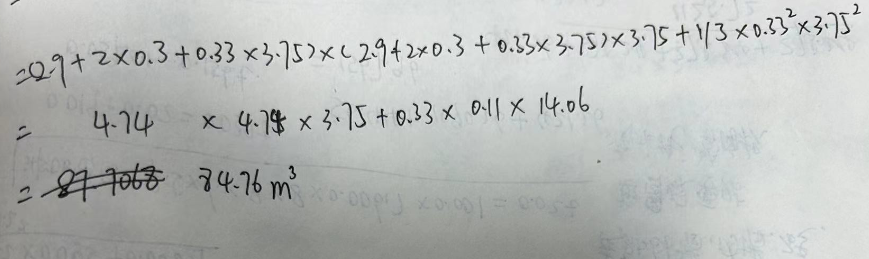 =(2.9+2×0.3+0.33×3.75)×(2.9+2×0.3+0.33×3.75)×3.75+1/3×0.33²×3.75²
= 4.74 × 4.74 × 3.75+0.33× 0.11 × 14.06
= 84.76 m³